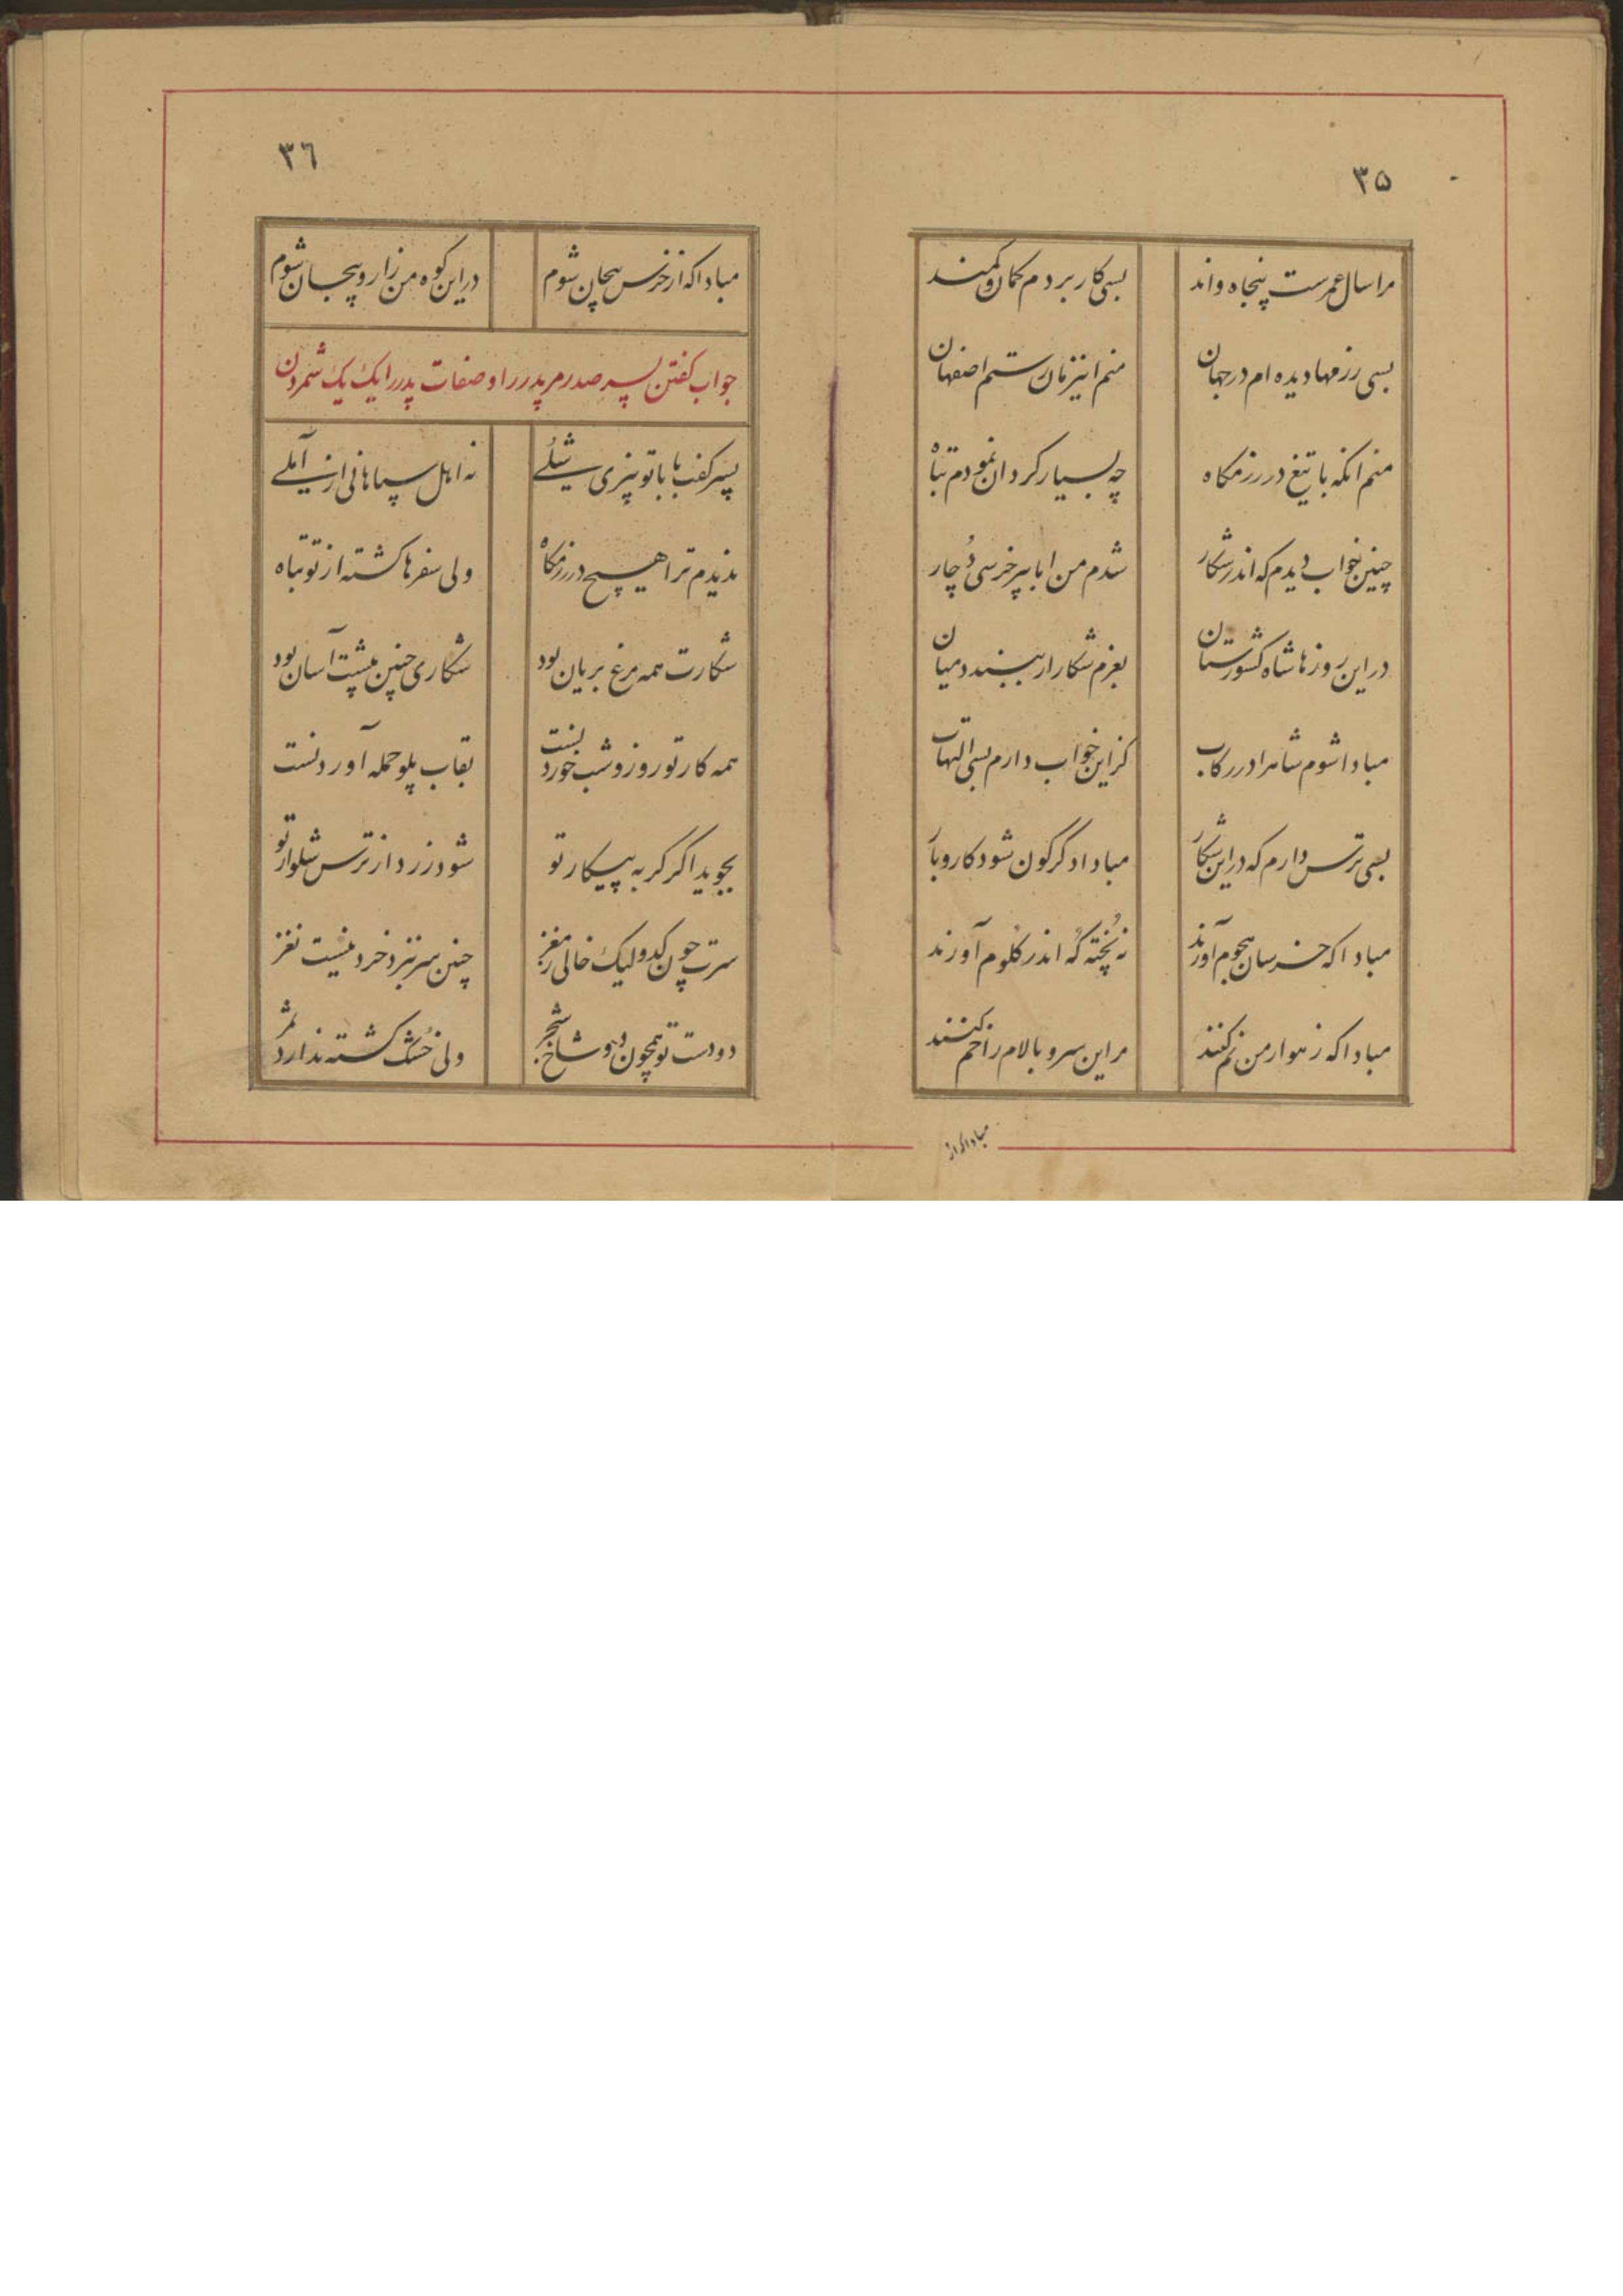 ۳۵
مرا سال عمرست پنجاه و اند بسی کار بردم کمان و کمند
بسی رزمها دیده ام در جهان منم اینزمان رستم اصفهان
منم انکه با تیغ در رزمکاه چه بسیار کردان نمودم تباه
چنین خواب دیدم که اندر شکار شدم من ابا پیر خرسی دُچار
در این روزها شاه کشورستان بعزم شکار ار ببندد میان
مبادا شوم شاهرا در رکاب کزاین خواب دارم بسی التهاب
بسی ترس دارم که در این شکار مبادا دکرکون شود کار و بار
مبادا که خرسان هجوم آورند نه پُخته کُه اندر کلوم آورند
مبادا که زهوار من نم کنند مر این سرو بالام را خم کنند
مبادا که از
۳٦
مبادا که از خرس پیچان شوم در این کوه من زار و بیجان شوم
جواب کفتن پسر صدر مر پدر را و صفات پدر را یک یک شمردن
پسر کفت بابا تو پنزی شلے نه اهل سپاهانی از آملے
ندیدم ترا هیچ در رزمکاه ولی سفرها کشته از تو تباه
شکارت همه مرغ بریان بود شکاری چنین پیشت آسان بود
همه کار تو روز و شب خوردنست بقاب پلو حمله آوردنست
بجوید اکر کربه پیکار تو شود زرد از ترس شلوار تو
سرت چون کدو لیک خالی ز مغز چنین سر بنزد خرد نیست نغز
دو دست تو همچون دو شاخ شجر ولی خُشک کشته ندارد ثمر